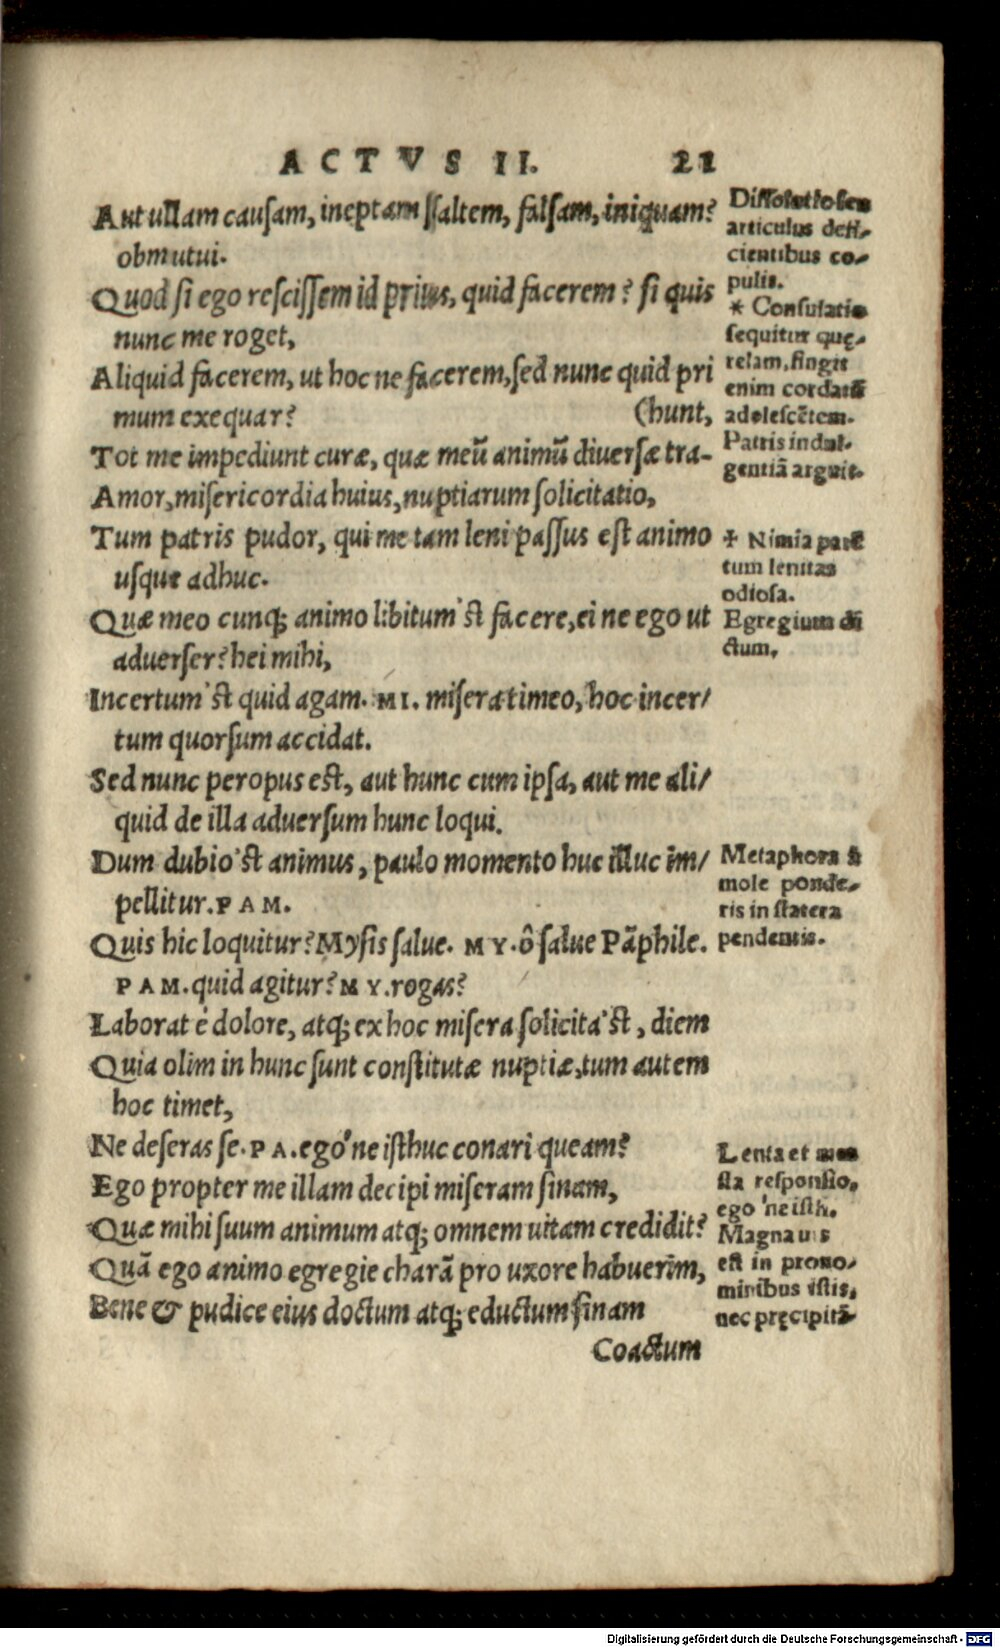 ACTVS II. 21
Aut ullam causam, ineptam saltem, falsam, iniquam?
obmutui.
Quod si ego rescissem id prius, quid facerem? si quis
nunc me roget,
Aliquid facerem, ut hoc ne facerem, sed nunc quid pri
mum exequar? (hunt,
Tot me impediunt curæ, quæ meũ animũ diversæ tra-
Amor, misericordia huius, nuptiarum solicitatio,
Tum patris pudor, qui me tam leni passus est animo
usque adhuc.
Quæ meo cunq; animo libitum'st facere, ei ne ego ut
adverser? hei mihi,
Incertum'st quid agam. MI. misera timeo, hoc incer/
tum quorsum accidat.
Sed nunc peropus est, aut hunc cum ipsa, aut me ali/
quid de illa adversum hunc loqui.
Dum dubio'st animus, paulo momento huc illuc im/
pellitur. PAM.
Quis hic loquitur? Mysis salue. MY. ô salue Pãphile.
PAM. quid agitur? MY. rogas?
Laborat è dolore, atq; ex hoc misera solicita'st, diem
Quia olim in hunc sunt constitutæ nuptiæ, tum autem
hoc timet,
Ne deseras se. PA. ego'ne isthuc conari queam?
Ego propter me illam decipi miseram sinam,
Quæ mihi suum animum atq; omnem uitam credidit?
Quã ego animo egregie charã pro uxore habuerim,
Bene & pudice eius doctum atq; eductum sinam
Coactum
Dissolutio seu
articulus defi-
cientibus co-
pulis.
* Consultatio
sequitur quę-
relam, fingit
enim cordatũ
adolescẽtem.
Patris indul-
gentiã arguit.
+ Nimia parẽ
tum lenitas
odiosa.
Egregium di
ctum.
Metaphora à
mole ponde-
ris in statera
pendentis.
Lenta et moe
sta responsio,
ego'ne isth.
Magna uis
est in prono-
minibus istis,
nec pręcipitã-
Digitalisierung gefördert durch die Deutsche Forschungsgemeinschaft - DFG